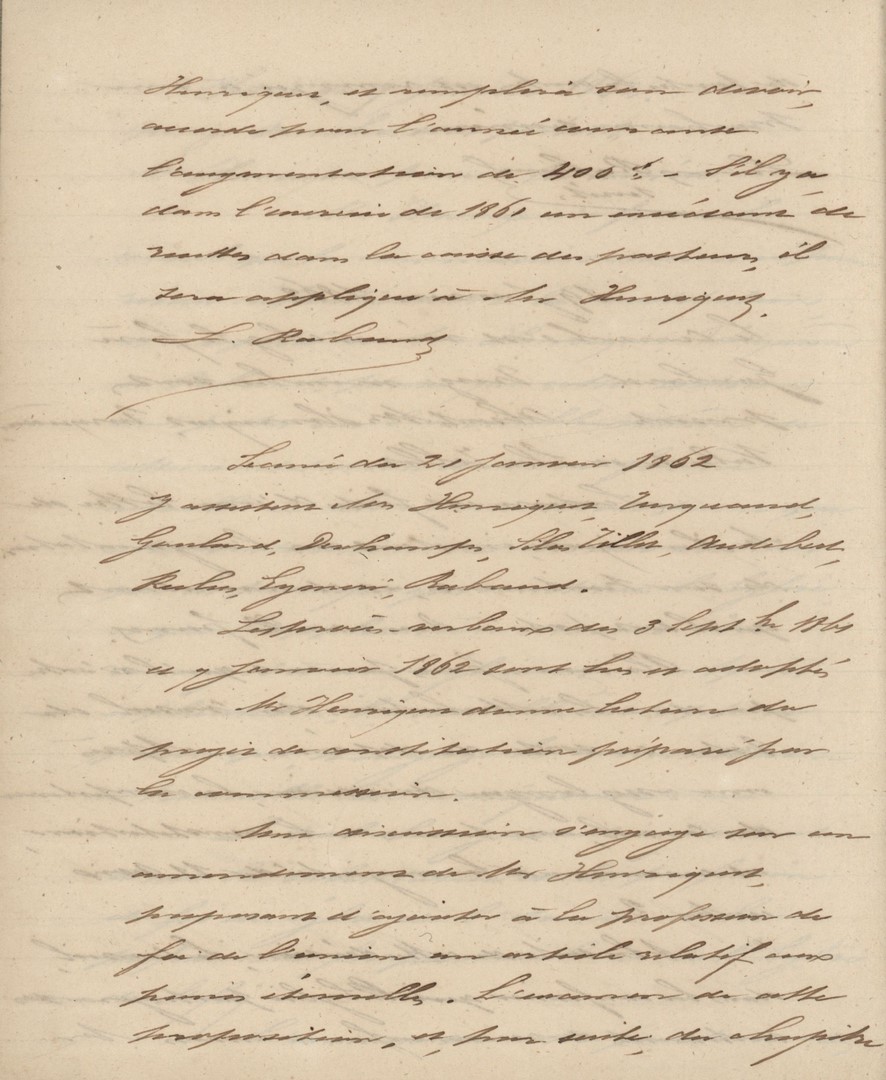 Henriquet, et remplira son devoir,
accorde pour l'année courante
l'augmentation de 400 f. – S'il y a
dans l'exercice de 1861 un excédant de
recettes dans la caisse des pasteurs, il
sera appliqué à Mr Henriquet.
L. Rabaud
Séance du 21 Janvier 1862
Y assistent Mrs Henriquet, Turquand,
Goulard, Deschamps, Silas Villet, Audebert,
Eymeri, Rabaud.
Les procès-verbaux des 3 Septbre 1861
et 7 Janvier 1862 sont lus et adoptés
Mr Henriquet donne lecture du
projet de constitution préparé par
la commission.
Une discussion s'engage sur un
amendement de Mr Henriquet,
proposant d'ajouter à la profession de
foi de l'union un article relatif aux
peines éternelles. L'examen de cette
proposition, et, par suite, du chapitre